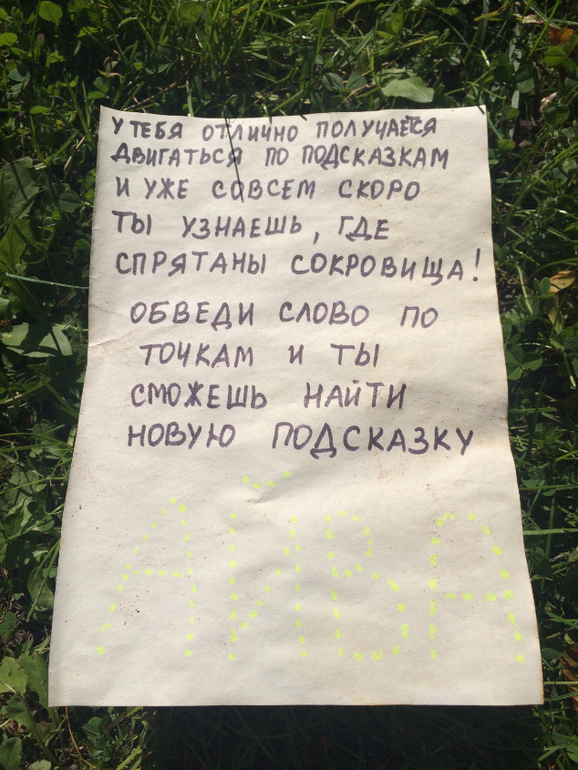 У ТЕБЯ ОТЛИЧНО ПОЛУЧАЕТСЯ
ДВИГАТЬСЯ ПО ПОДСКАЗКАМ
И УЖЕ СОВСЕМ СКОРО
ТЫ УЗНАЕШЬ, ГДЕ
СПРЯТАНЫ СОКРОВИЩА!
ОБВЕДИ СЛОВО ПО
ТОЧКАМ И ТЫ
СМОЖЕШЬ НАЙТИ
НОВУЮ ПОДСКАЗКУ
АЙВА